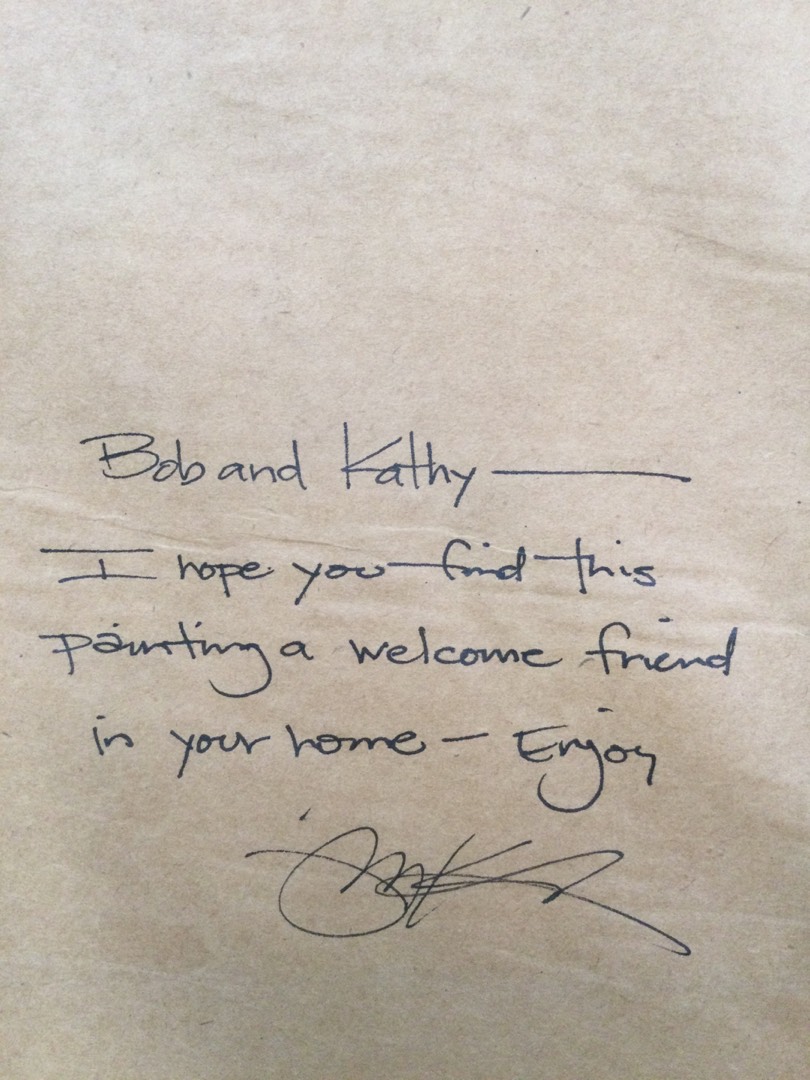 Bob and Kathy —
I hope you find this
painting a welcome friend
in your home — Enjoy